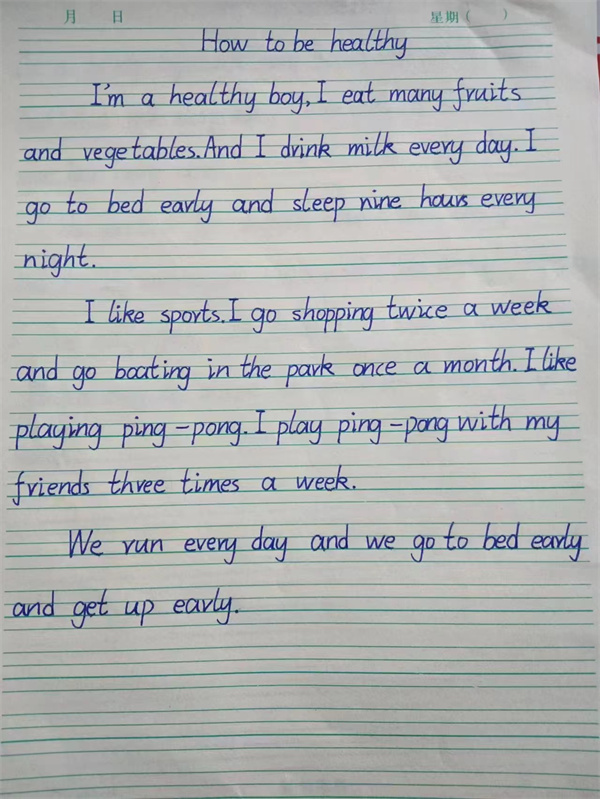 月 日 星期( )
How to be healthy
I'm a healthy boy, I eat many fruits
and vegetables. And I drink milk every day. I
go to bed early and sleep nine hours every
night.
I like sports. I go shopping twice a week
and go boating in the park once a month. I like
playing ping-pong. I play ping-pong with my
friends three times a week.
We run every day and we go to bed early
and get up early.